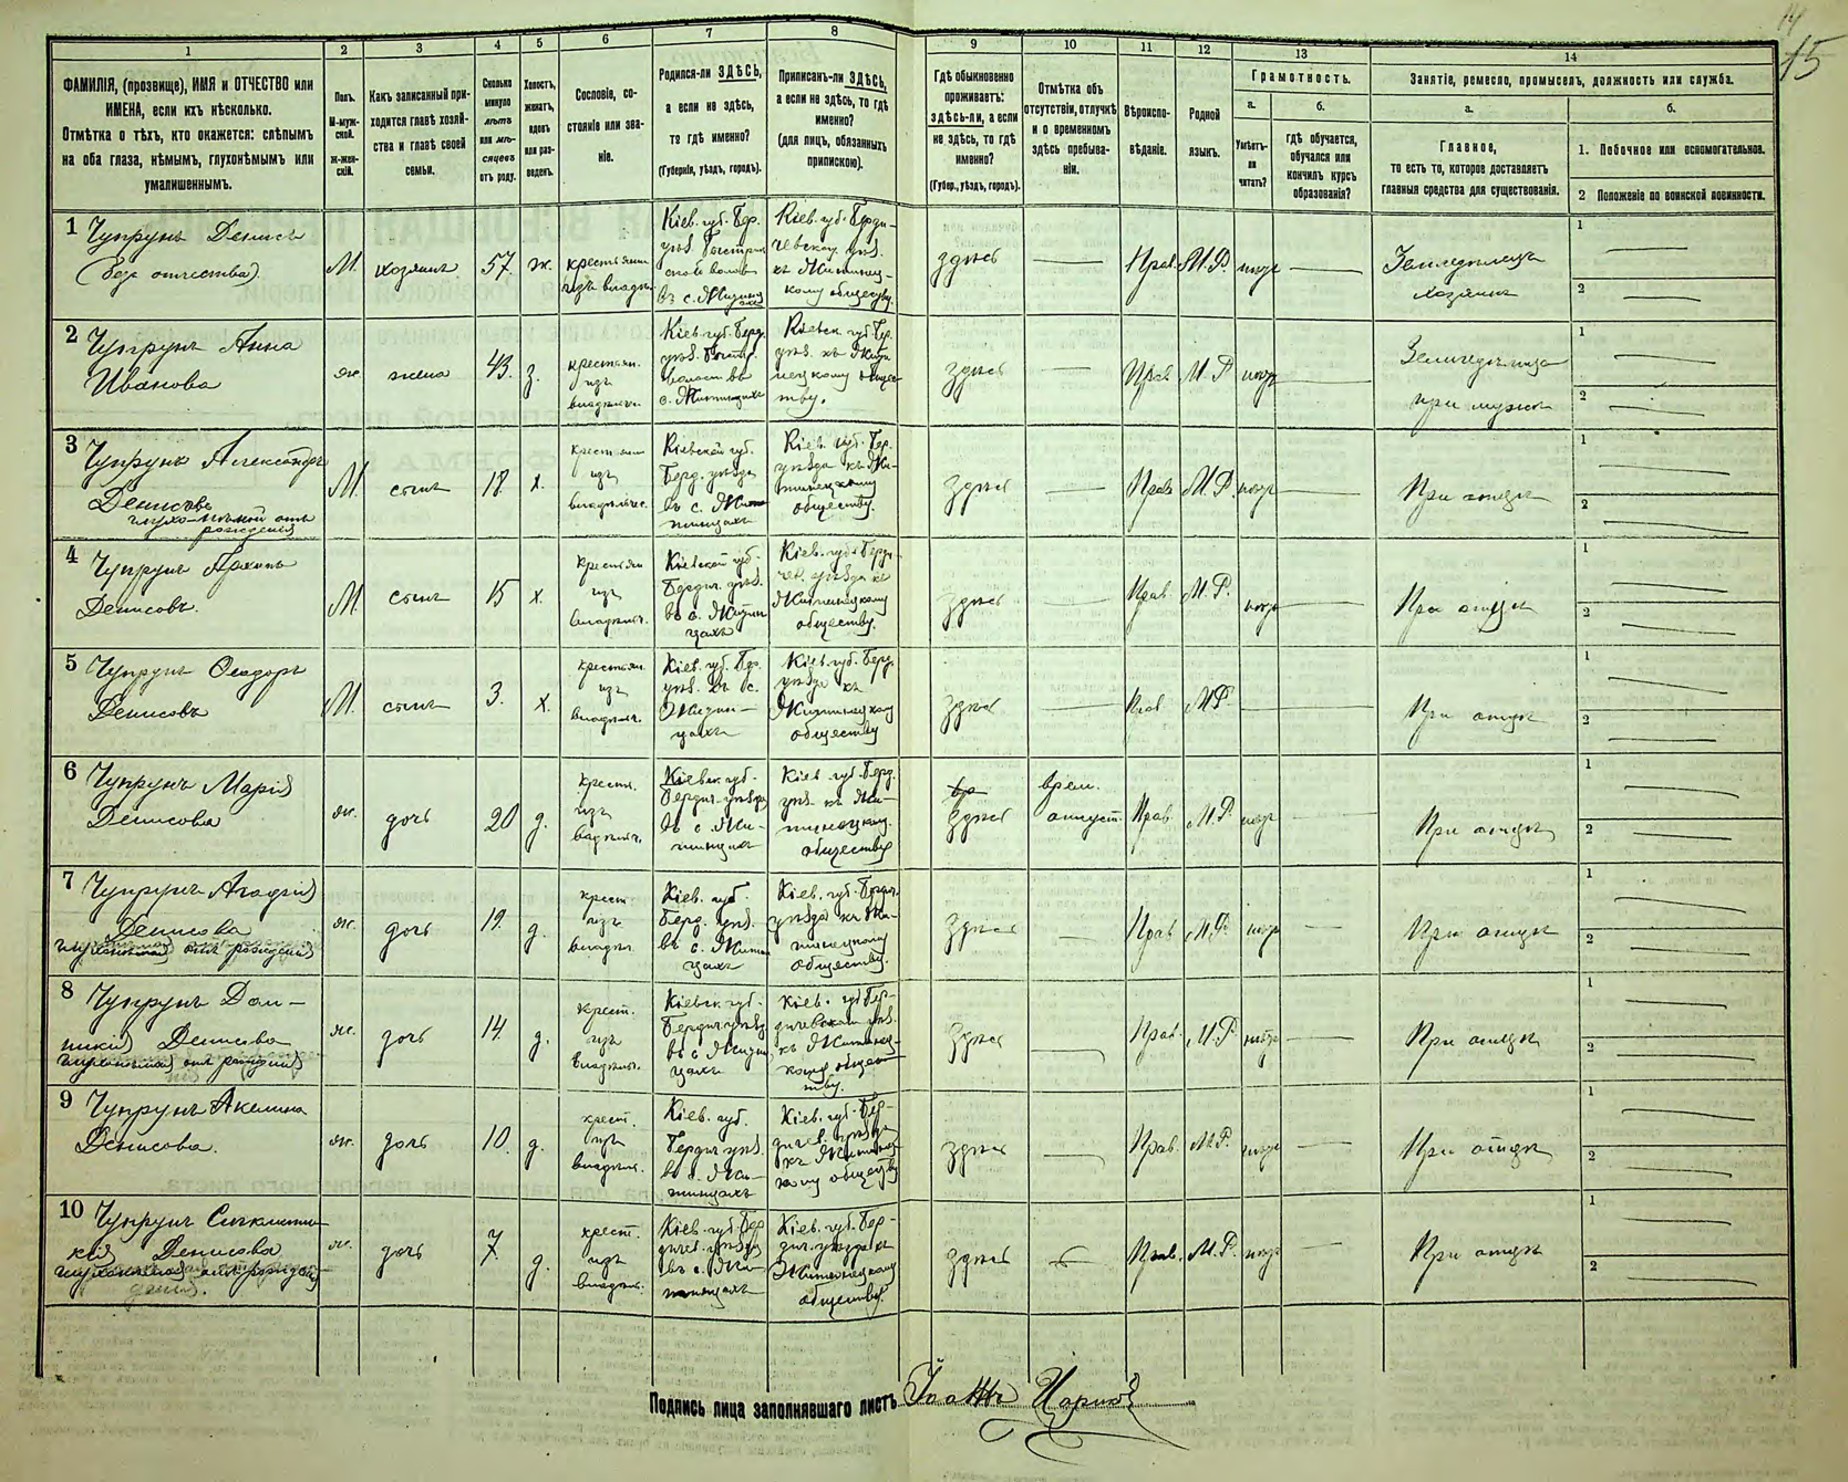 14
15
1
2
3
4
5
6
7
8
9
10
11
12
13
14
ФАМИЛІЯ, (прозвище), ИМЯ и ОТЧЕСТВО или
ИМЕНА, если ихъ нѣсколько.
Отмѣтка о тѣхъ, кто окажется: слѣпымъ
на оба глаза, нѣмымъ, глухонѣмымъ или
умалишеннымъ.
Полъ.
М-муж-
ской.
ж-жен-
скій.
Какъ записанный при-
ходится главѣ хозяй-
ства и главѣ своей
семьи.
Сколько
минуло
лѣтъ
или мѣ-
сяцевъ
отъ роду.
Холостъ,
женатъ,
вдовъ
или раз-
веденъ.
Сословіе, со-
стояніе или зва-
ніе.
Родился-ли ЗДѢСЬ,
а если не здѣсь,
то гдѣ именно?
(Губернія, уѣздъ, городъ).
Приписанъ-ли ЗДѢСЬ,
а если не здѣсь, то гдѣ
именно?
(для лицъ, обязанныхъ
припискою).
Гдѣ обыкновенно
проживаетъ:
здѣсь-ли, а если
не здѣсь, то гдѣ
именно?
(Губер., уѣздъ, городъ).
Отмѣтка объ
отсутствіи, отлучкѣ
и о временномъ
здѣсь пребыва-
ніи.
Вѣроиспо-
вѣданіе.
Родной
языкъ.
Грамотность.
а.
Умѣетъ-
ли
читать?
б.
Гдѣ обучается,
обучался или
кончилъ курсъ
образованія?
Занятіе, ремесло, промыселъ, должность или служба.
а.
Главное,
то есть то, которое доставляетъ
главныя средства для существованія.
б.
1. Побочное или вспомогательное.
2 Положеніе по воинской повинности.
1 Чупрунъ Денисъ
(безъ отчества)
М. хозяинъ 57 ж. крестьянин
изъ владѣл.
Кіев. губ. Бер.
въ с. Житинцахъ
Кіев. губ. Берди-
чевскому уѣз.
къ Житинец-
кому обществу.
здѣсь Прав. М.Р. негр
Земледѣлецъ
хозяинъ
1
2
2 Чупрунъ Анна
Иванова
ж. жена 43. з. крестьян.
изъ
владѣльч.
Кіев. губ. Берд.
с. Житинцахъ
Кіевск. губ. Бер.
уѣз. къ Жити-
нецкому общес-
тву.
здѣсь Прав М.Р негр
при мужѣ
1
2
3 Чупрунъ Александръ
Денисовъ
глухо-нѣмой отъ
рожденія
М. сынъ 18 х. изъ
владѣльчес.
Кіевской губ.
Берд. уѣзда
въ с. Жи-
тинцахъ
Кіев. губ. Бер.
уѣзда къ Жи-
тинецкому
обществу.
здѣсь Прав М.Р. негр При отцѣ
1
2
4 Чупрунъ
Денисовъ.
М. сынъ 15 х. изъ
владѣльч.
Кіевской губ.
Бердич. уѣз.
въ с. Житин-
цахъ
Кіев. губ. Берди-
чев. уѣзда къ
Житинецкому
обществу.
здѣсь Прав М.Р. негр При отцѣ
1
2
5 Чупрунъ Ѳеодоръ
Денисовъ
М. сынъ 3. х. крестьян.
изъ
владѣльч.
Кіев. губ. Бер.
уѣз. въ с.
Житин-
цахъ
Кіев. губ. Берд.
уѣзда къ
Житинецкому
обществу
здѣсь Прав М.Р. При отцѣ
1
2
6 Чупрунъ Марія
Денисова
ж. дочь 20 д. крестьн.
изъ
владѣльч.
Кіевск. губ.
Бердич. уѣзда
въ с. Жи-
тинцахъ
Кіев губ. Берд.
уѣз. къ Жи-
тинецкому
обществу
здѣсь
врем.
отсутст.
Прав М.Р. негр При отцѣ
1
2
7 Чупрунъ Агафія
Денисова
глухонѣмая отъ рожденія
ж. дочь 19. д. крест.
изъ
владѣл.
Кіев. губ.
Берд. уѣз.
въ с. Житин-
цахъ
Кіев. губ. Бердич.
уѣзда къ Жи-
тинецкому
обществу.
здѣсь Прав М.Р. негр При отцѣ
1
2
8 Чупрунъ Дом-
никія Денисова
глухонѣмая отъ рожденія
ж. дочь 14. д. крест.
изъ
владѣльч.
Кіевск. губ.
Бердич. уѣзд.
въ с. Житин-
цахъ
Кіев. губ Бер-
дичевскаго уѣз.
къ Житинец-
кому общест-
тву.
здѣсь Прав. М.Р негр При отцѣ
1
2
9 Чупрунъ Акилина
Денисова.
ж. дочь 10. д. крест.
изъ
владѣльч.
Кіев. губ.
Бердич уѣз.
въ с. Жи-
тинцахъ
Кіев. губ. Бер-
дичев. уѣзда
къ Житинец-
кому обществу
здѣсь Прав. М.Р. негр При отцѣ
1
2
10 Чупрунъ
Денисова
ж. дочь 7 д. крест.
изъ
владѣльч.
Кіев. губ. Бер-
дичев. уѣзда
въ с. Жи-
тинцахъ
Кіев. губ. Бер-
дич. уѣзда къ
Житинецкому
обществу.
здѣсь Прав. М.Р. негр При отцѣ
1
2
Подпись лица заполнявшаго листъ